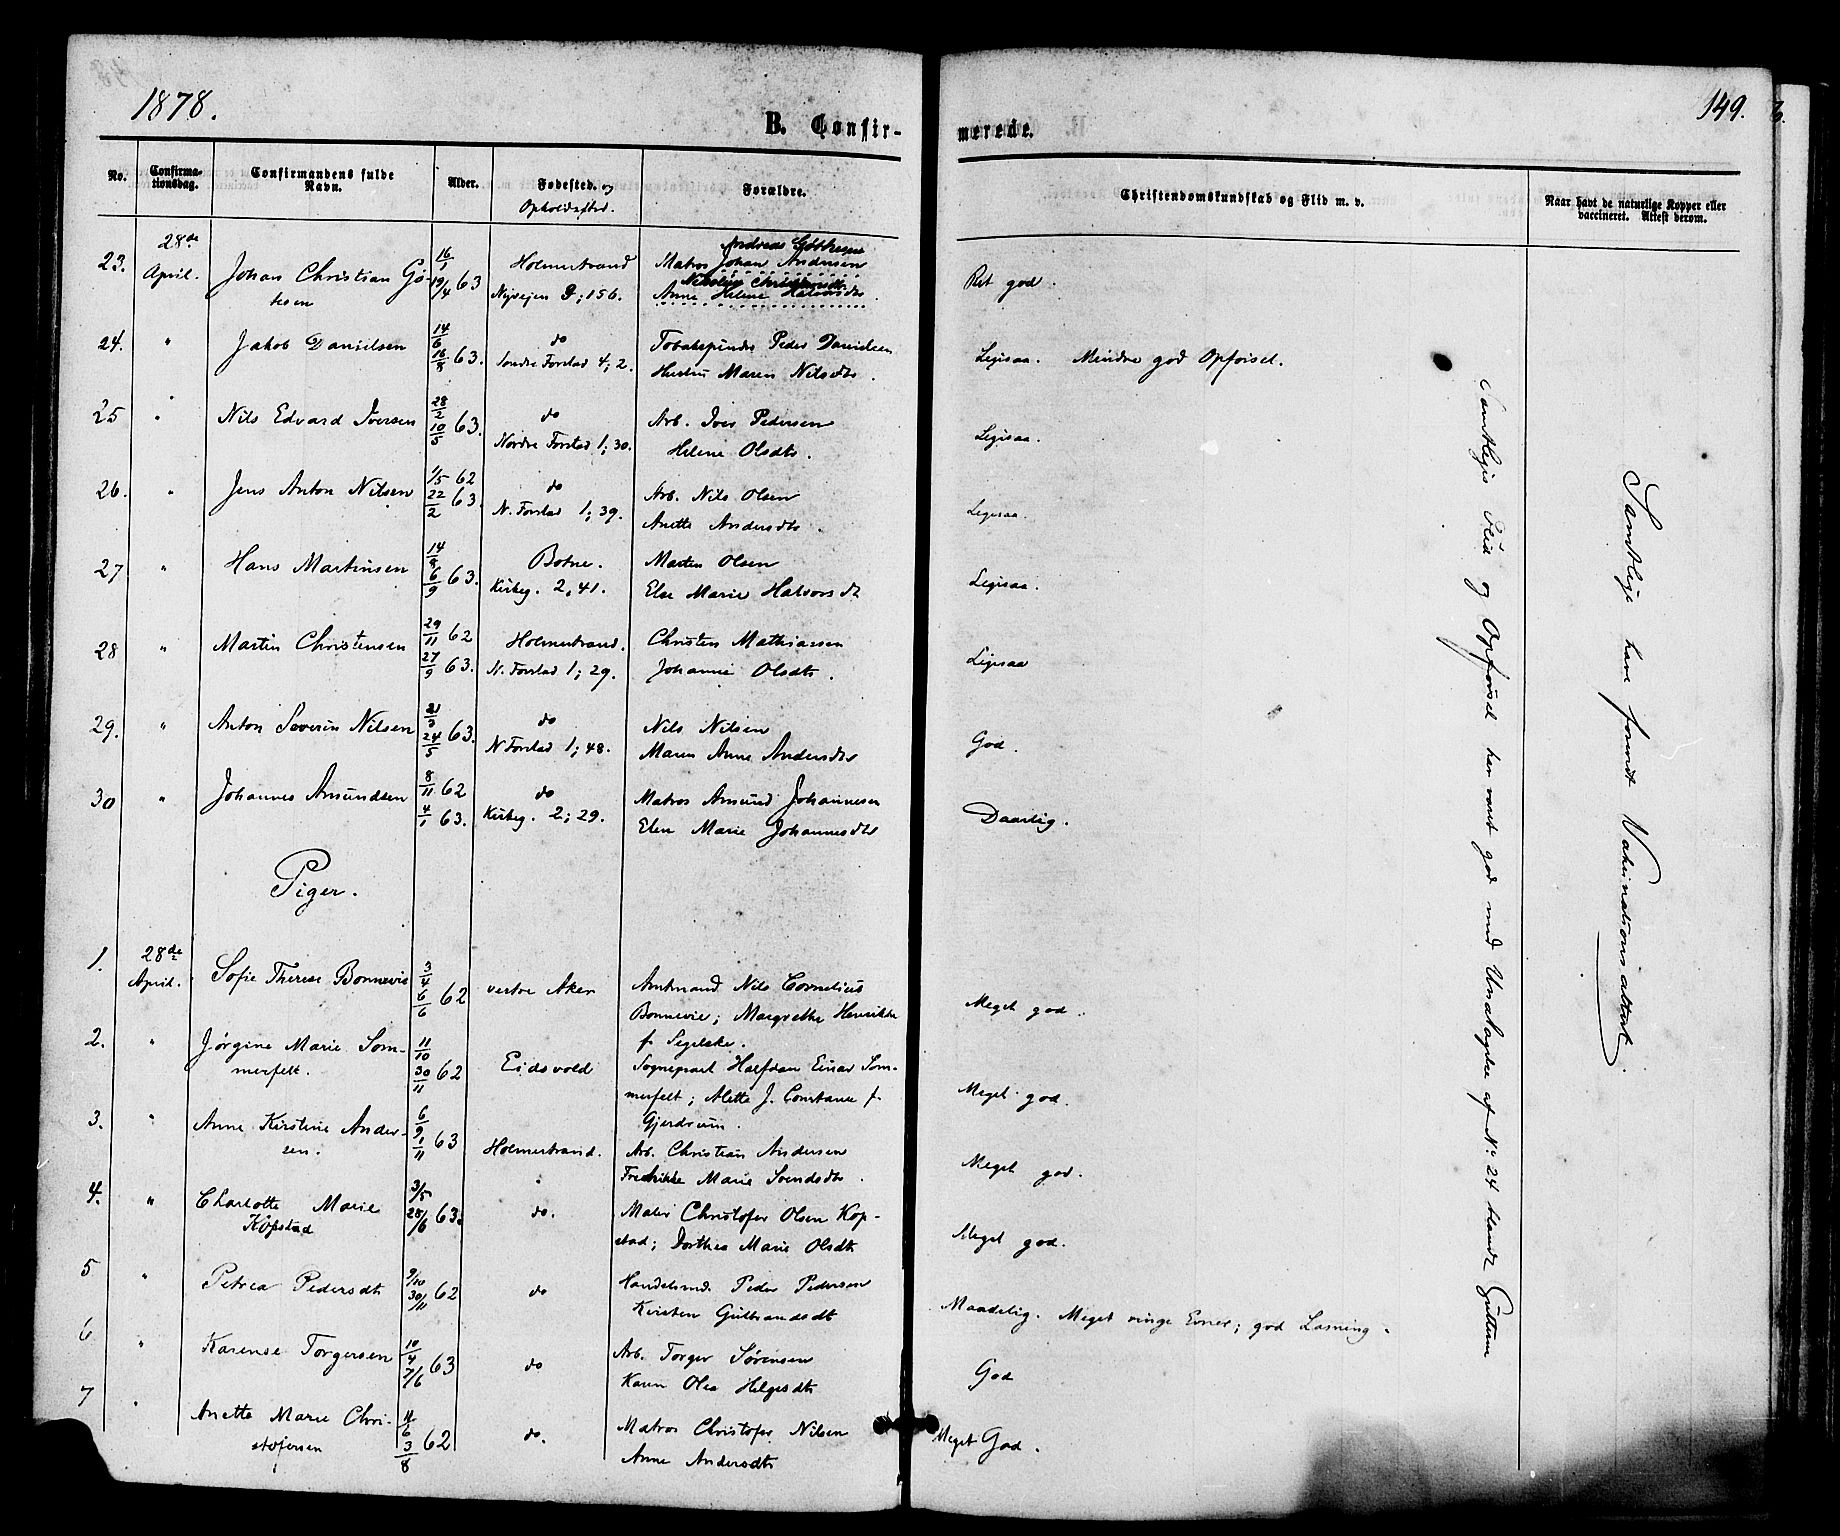 1878.
149.
B. Confir-
merede.
No.
Confirma-
tionsdag.
Confirmandens fulde
Navn.
Alder.
Fødested. og
Opholdssted.
Forældre.
Christendomskundskab og Flid m. v.
Naar havt de naturlige Kopper eller
vaccineret. Attest derom.
23. 28de April. Johan Christian Gö-
tesen
16/1 19/4 63
Holmestrand
Nyvejen 9; 156.
Andreas
Matros Johan Andersen
Anne Helene Halvorsdt.
Ret god.
24. " Jakob Danielsen
14/6 16/8 63.
do
Søndre Forstad 4; 2.
Tobakspinder Peder Danielsen
Hustru Maren Nilsdtr.
Ligesaa. Mindre god Opførsel.
25 " Nils Edvard Iversen
28/2 10/5 63.
do
Nordre Forstad 1; 30.
Arb. Iver Pedersen
Helene Olsdtr.
Ligesaa.
26. " Jens Anton Nilsen
1/5 62
22/2 63.
do
N. Forstad 1; 39.
Arb. Nils Olsen
Anette Andersdtr.
Ligesaa.
27 " Hans Martinsen
6/9 63.
Botne.
Kirkeg. 2, 41.
Martin Olsen
Else Marie Halvorsdt
Ligesaa.
28 " Martin Christensen
29/11 62
27/9 63.
Holmestrand.
N. Forstad 1; 29.
Christen Mathiassen
Johanne Olsdtr.
Ligesaa
29. " Anton Severin Nilsen
21/3 24/5 63.
do
N Forstad 1; 48.
Nils Nilsen
Maren Anne Andersdtr
God.
30 " Johannes Amundsen
8/11 62
4/1 63.
do
Kirkeg. 2; 29.
Matros Amund Johannesen
Elen Marie Johannesdtr
Daarlig.
Piger.
1. 28de April. Sofie Therese Bonnevie
3/4 6/6 62
vestre Aker
Amtmand Nils Cornelius
Bonnevie; Margrethe Henrikke
f. Segelcke.
Meget god.
2. " Jørgine Marie Som-
merfelt.
11/10 30/11 62
Eidsvold
Sogneprest Halfdan Einar Som-
merfelt; Alette J. Constance f.
Gjerdrum.
Meget god.
3. " Anne Kirstine Ander-
sen.
6/9 1/11 63
Holmestrand.
Arb. Christian Andersen
Fredrikke Marie Svendsdtr.
Meget god.
4. " Charlotte Marie
Kopstad
3/5 25/6 63.
do.
Maler Christofer Olsen Kop-
stad; Dorthea Marie Olsdtr
Meget god.
5 " Petrea Pedersdt
9/10 30/11 62
do
Handelsmd. Peder Pedersen
Kirsten Gulbrandsdt
Maadelig. Meget ringe Evner; god Læsning.
6 " Karense Torgersen
10/4 7/6 63
do
Arb. Torger Sørensen
Karen Olea Helgesdtr
God
7 " Anette Marie Chri-
stofersen
11/6 3/8 62
do.
Matros Christofer Nilsen
Anne Andersdtr
Meget God.
Samtliges Flid og Opførsel har været god med Undtagelse af No. 24 blandt Guttene
Samtlige have forevist Vakcinationsattest.